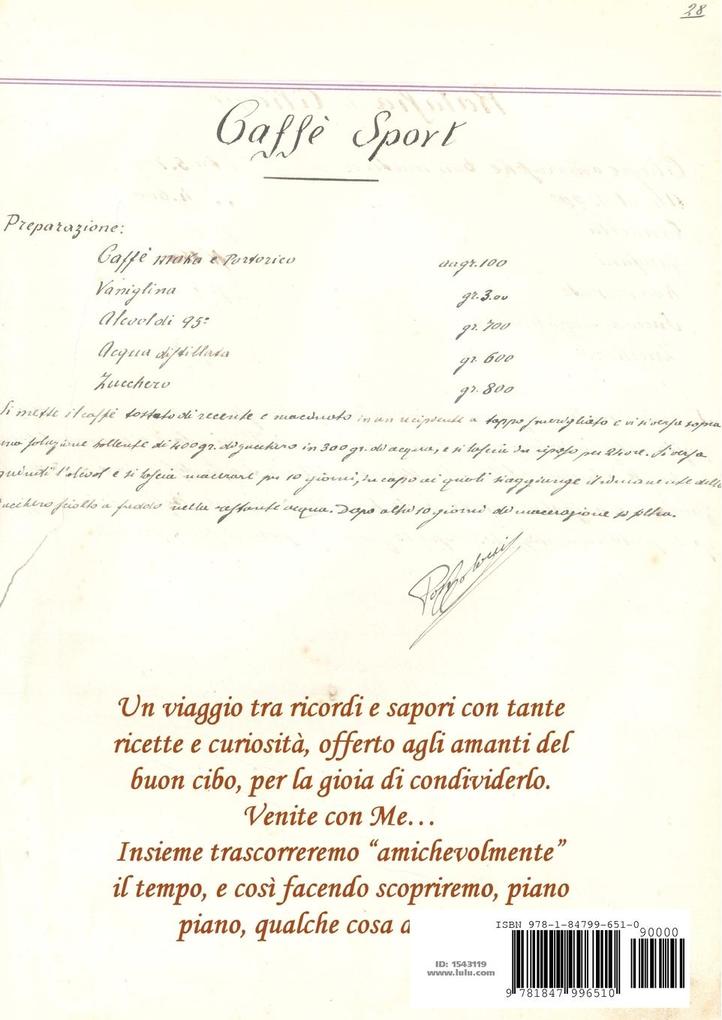 28
Caffè Sport
Preparazione:
Caffè moka e Portorico aa gr. 100
Vaniglina gr. 3.00
Alcool di 95° gr. 700
Acqua distillata gr. 600
Zucchero gr. 800
Si mette il caffè tostato di recente e macinato in un recipiente a tappo smerigliato e vi si versa sopra
una soluzione bollente di 400 gr. di zucchero in 300 gr. di acqua, e si lascia in riposo per 24 ore. Si versa
quindi l'alcool e si lascia macerare per 10 giorni, in capo ai quali si aggiunge il rimanente dello
zucchero sciolto a freddo nella restante acqua. Dopo altri 10 giorni di macerazione si filtra.
Un viaggio tra ricordi e sapori con tante
ricette e curiosità, offerto agli amanti del
buon cibo, per la gioia di condividerlo.
Venite con Me...
Insieme trascorreremo “amichevolmente”
il tempo, e così facendo scopriremo, piano
piano, qualche cosa
ISBN 978-1-84799-651-0
90000
ID: 1543119
www.lulu.com
9 781847 996510